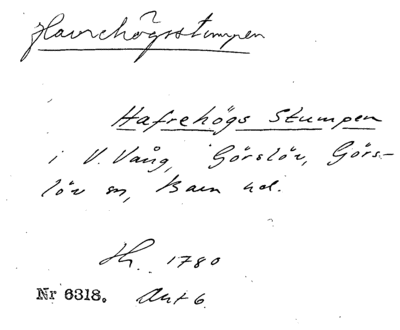 Havrehögsstumpen
Hafrehögs Stumpen
i V. Vång, Görslöv, Görs-
löv sn, Bara hd.
Hs. 1780
Nr 6318. Akt 6.